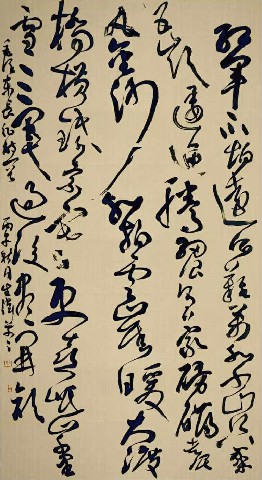 红军不怕远征难万水千山只等闲
五岭逶迤腾细浪乌蒙磅礴走泥
丸金沙水拍云崖暖大渡
桥横铁索寒更喜岷山千里
雪三军过后尽开颜
毛泽东长征诗一首 秋月